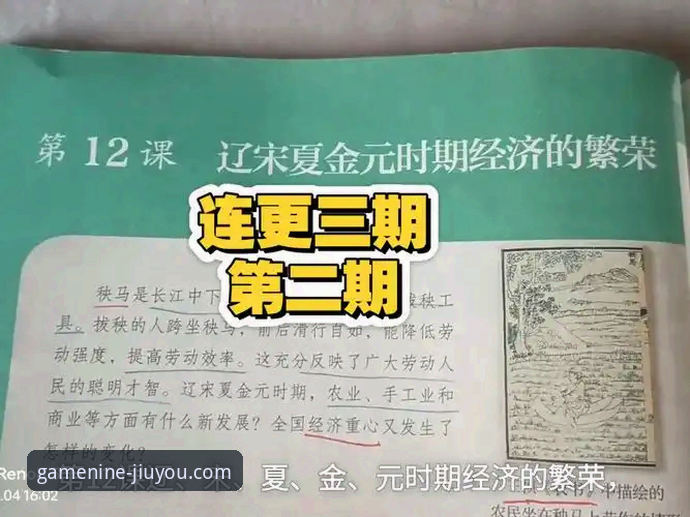 第12课 辽宋夏金元时期经济的繁荣
连更三期
第二期
秧马是长江中下
拔秧工
具。拔秧的人跨坐秧马，前后滑行自如，能降低劳
动强度，提高劳动效率。这充分反映了广大劳动人
民的聪明才智。辽宋夏金元时期，农业、手工业和
商业等方面有什么新发展？全国经济重心又发生了
怎样的变化？
Reno
.04 16:02
gamenine-jiuyou.com
夏、金、元时期经济的繁荣，
《农书》中描绘的
农民坐在秧马上